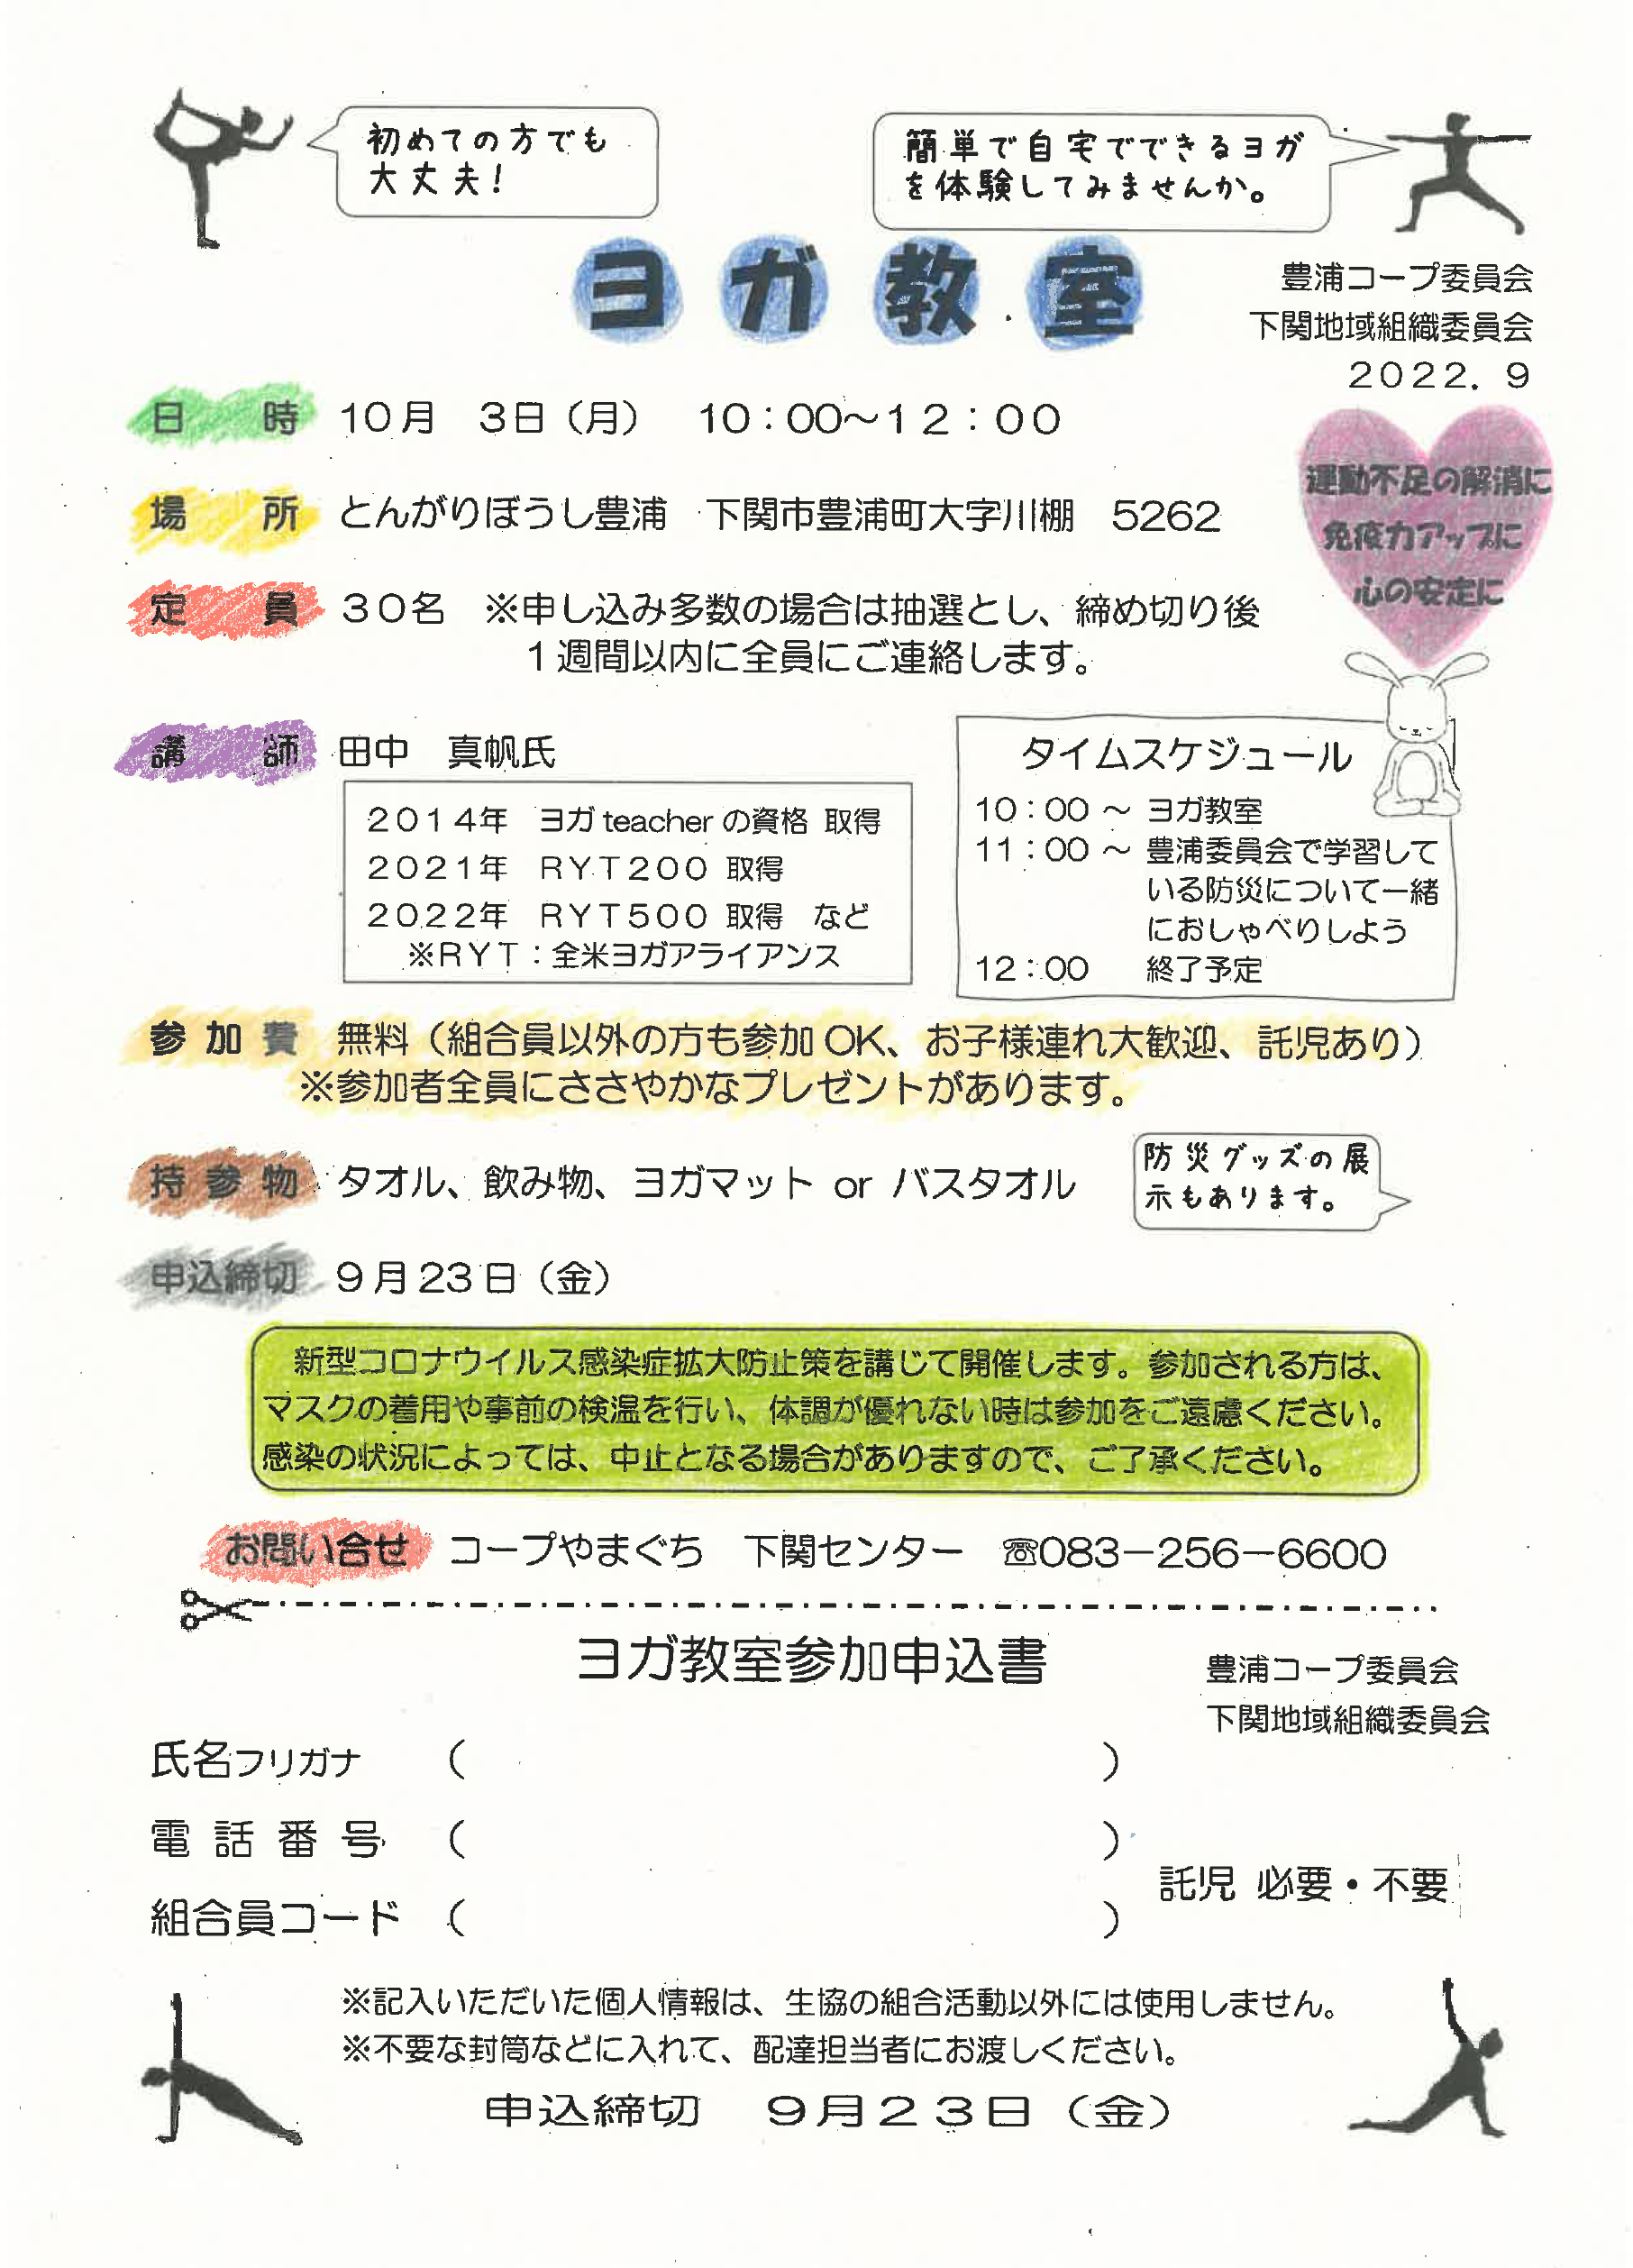 初めての方でも
大丈夫!
簡単で自宅でできるヨガ
を体験してみませんか。
ヨガ教室
豊浦コープ委員会
下関地域組織委員会
2022．9
日　時　10月　3日（月）　10：00～12：00
場　所　とんがりぼうし豊浦　下関市豊浦町大字川棚　5262
運動不足の解消に
免疫力アップに
心の安定に
定　員　30名　※申し込み多数の場合は抽選とし、締め切り後
1週間以内に全員にご連絡します。
講　師　田中　真帆氏
2014年　ヨガ teacher の資格 取得
2021年　RYT200 取得
2022年　RYT500 取得　など
※RYT：全米ヨガアライアンス
タイムスケジュール
10：00 ～ ヨガ教室
11：00 ～ 豊浦委員会で学習して
いる防災について一緒
におしゃべりしよう
12：00　終了予定
参加費　無料（組合員以外の方も参加 OK、お子様連れ大歓迎、託児あり）
※参加者全員にささやかなプレゼントがあります。
持参物　タオル、飲み物、ヨガマット or バスタオル
防災グッズの展
示もあります。
申込締切　9月23日（金）
新型コロナウイルス感染症拡大防止策を講じて開催します。参加される方は、
マスクの着用や事前の検温を行い、体調が優れない時は参加をご遠慮ください。
感染の状況によっては、中止となる場合がありますので、ご了承ください。
お問い合せ　コープやまぐち　下関センター　☏083－256－6600
ヨガ教室参加申込書
豊浦コープ委員会
下関地域組織委員会
氏名フリガナ　（　　　）
電話番号　（　　　）
託児 必要・不要
組合員コード　（　　　）
※記入いただいた個人情報は、生協の組合活動以外には使用しません。
※不要な封筒などに入れて、配達担当者にお渡しください。
申込締切　9月23日（金）